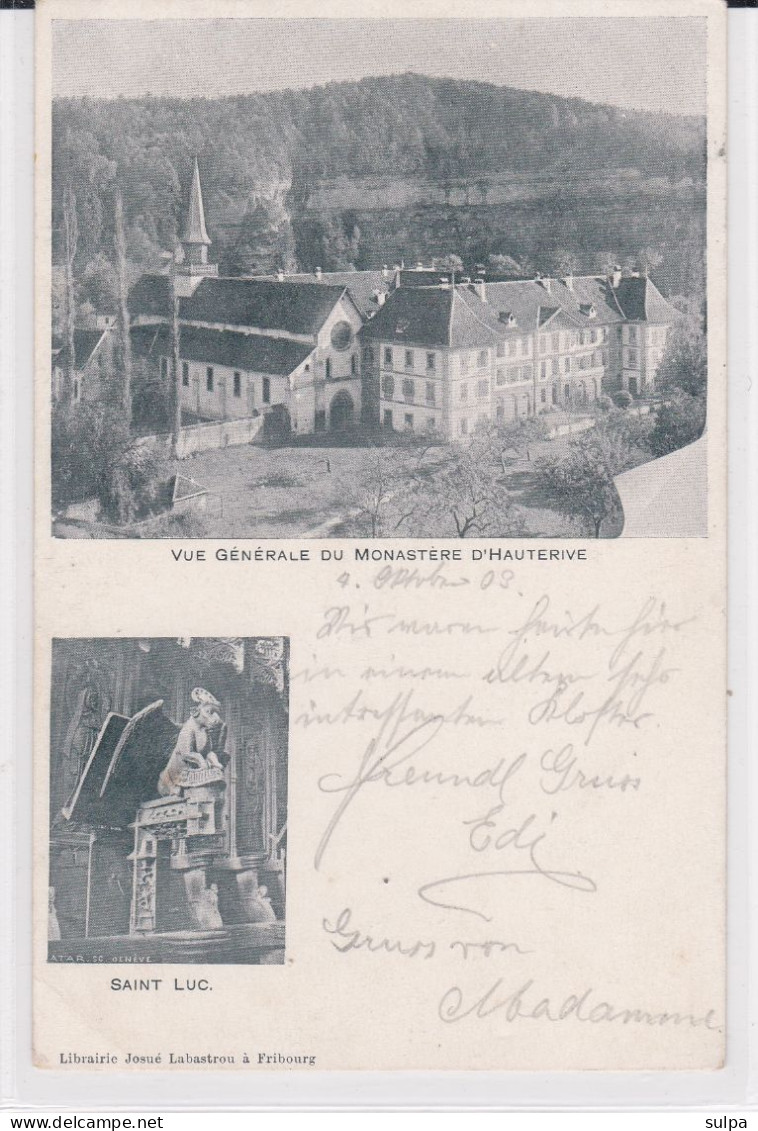 VUE GÉNÉRALE DU MONASTÈRE D'HAUTERIVE
4. Oktober 03.
Wir waren heute hier
in einem alten sehr
intressanten Kloster.
Freundl Gruss
Edi
ATAR. SC GENÈVE
SAINT LUC.
Gruss von
Madamme.
Librairie Josué Labastrou à Fribourg
sulpa